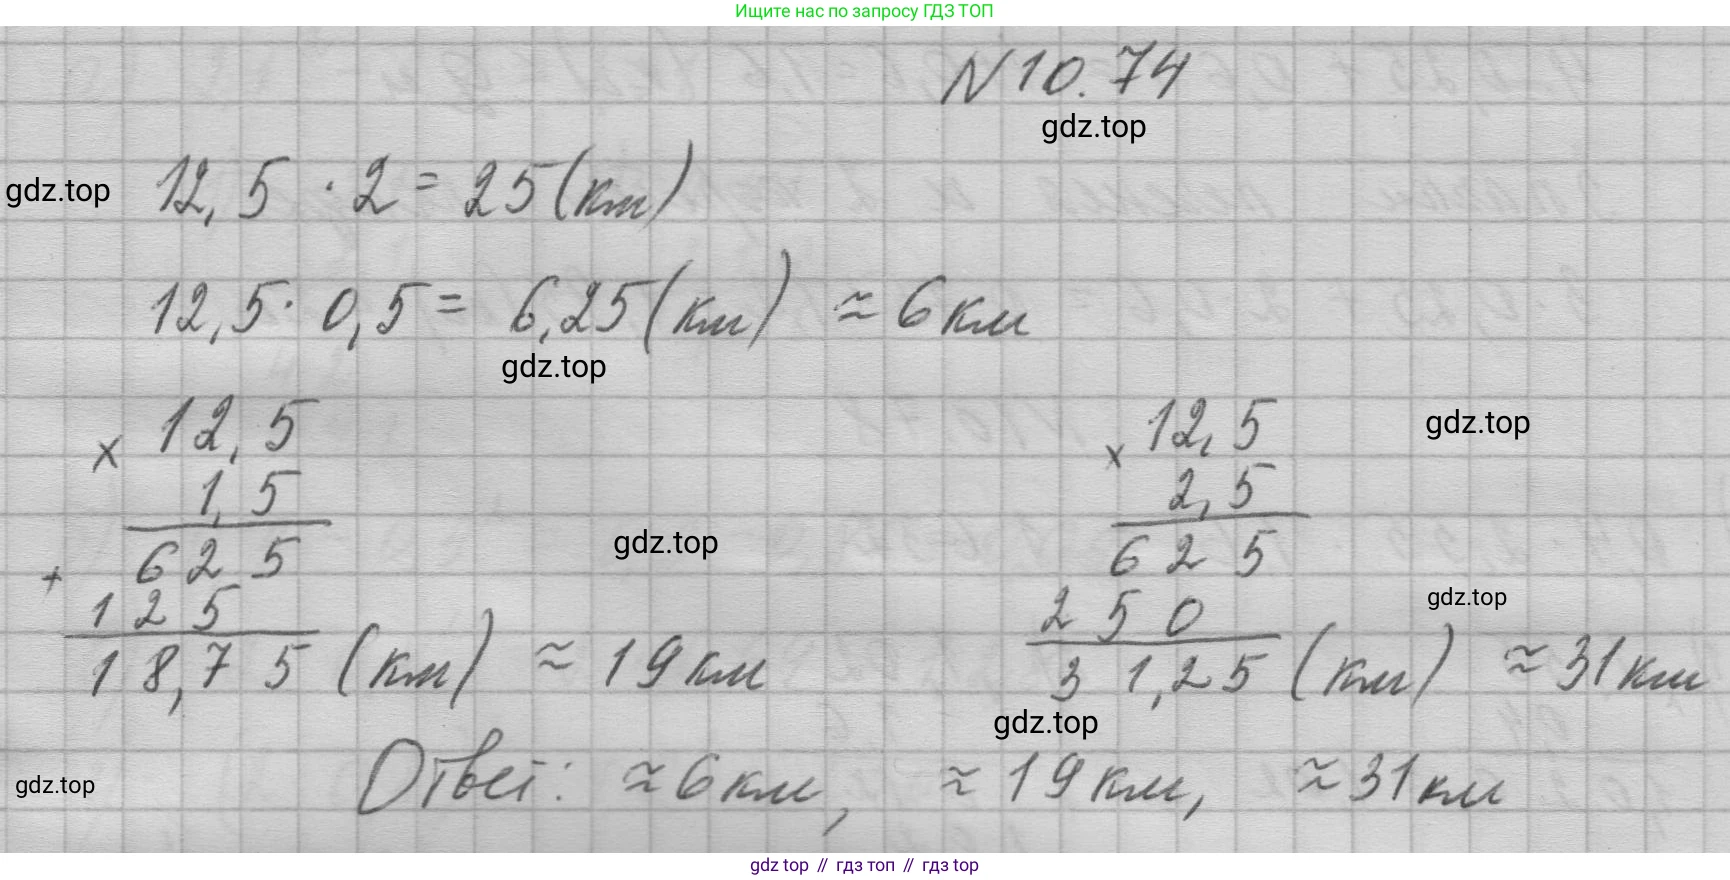 Ищите нас по запросу ГДЗ ТОП
N 10.74
gdz.top
gdz.top
12,5 · 2 = 25 (км)
12,5 · 0,5 = 6,25 (км) ≈ 6 км
gdz.top
× 12,5
1,5
625
+ 125
18,75 (км) ≈ 19 км
gdz.top
× 12,5
2,5
625
250
31,25 (км) ≈ 31 км
gdz.top
gdz.top
gdz.top
Ответ: ≈ 6 км, ≈ 19 км, ≈ 31 км
gdz.top
gdz top // гдз топ // гдз top